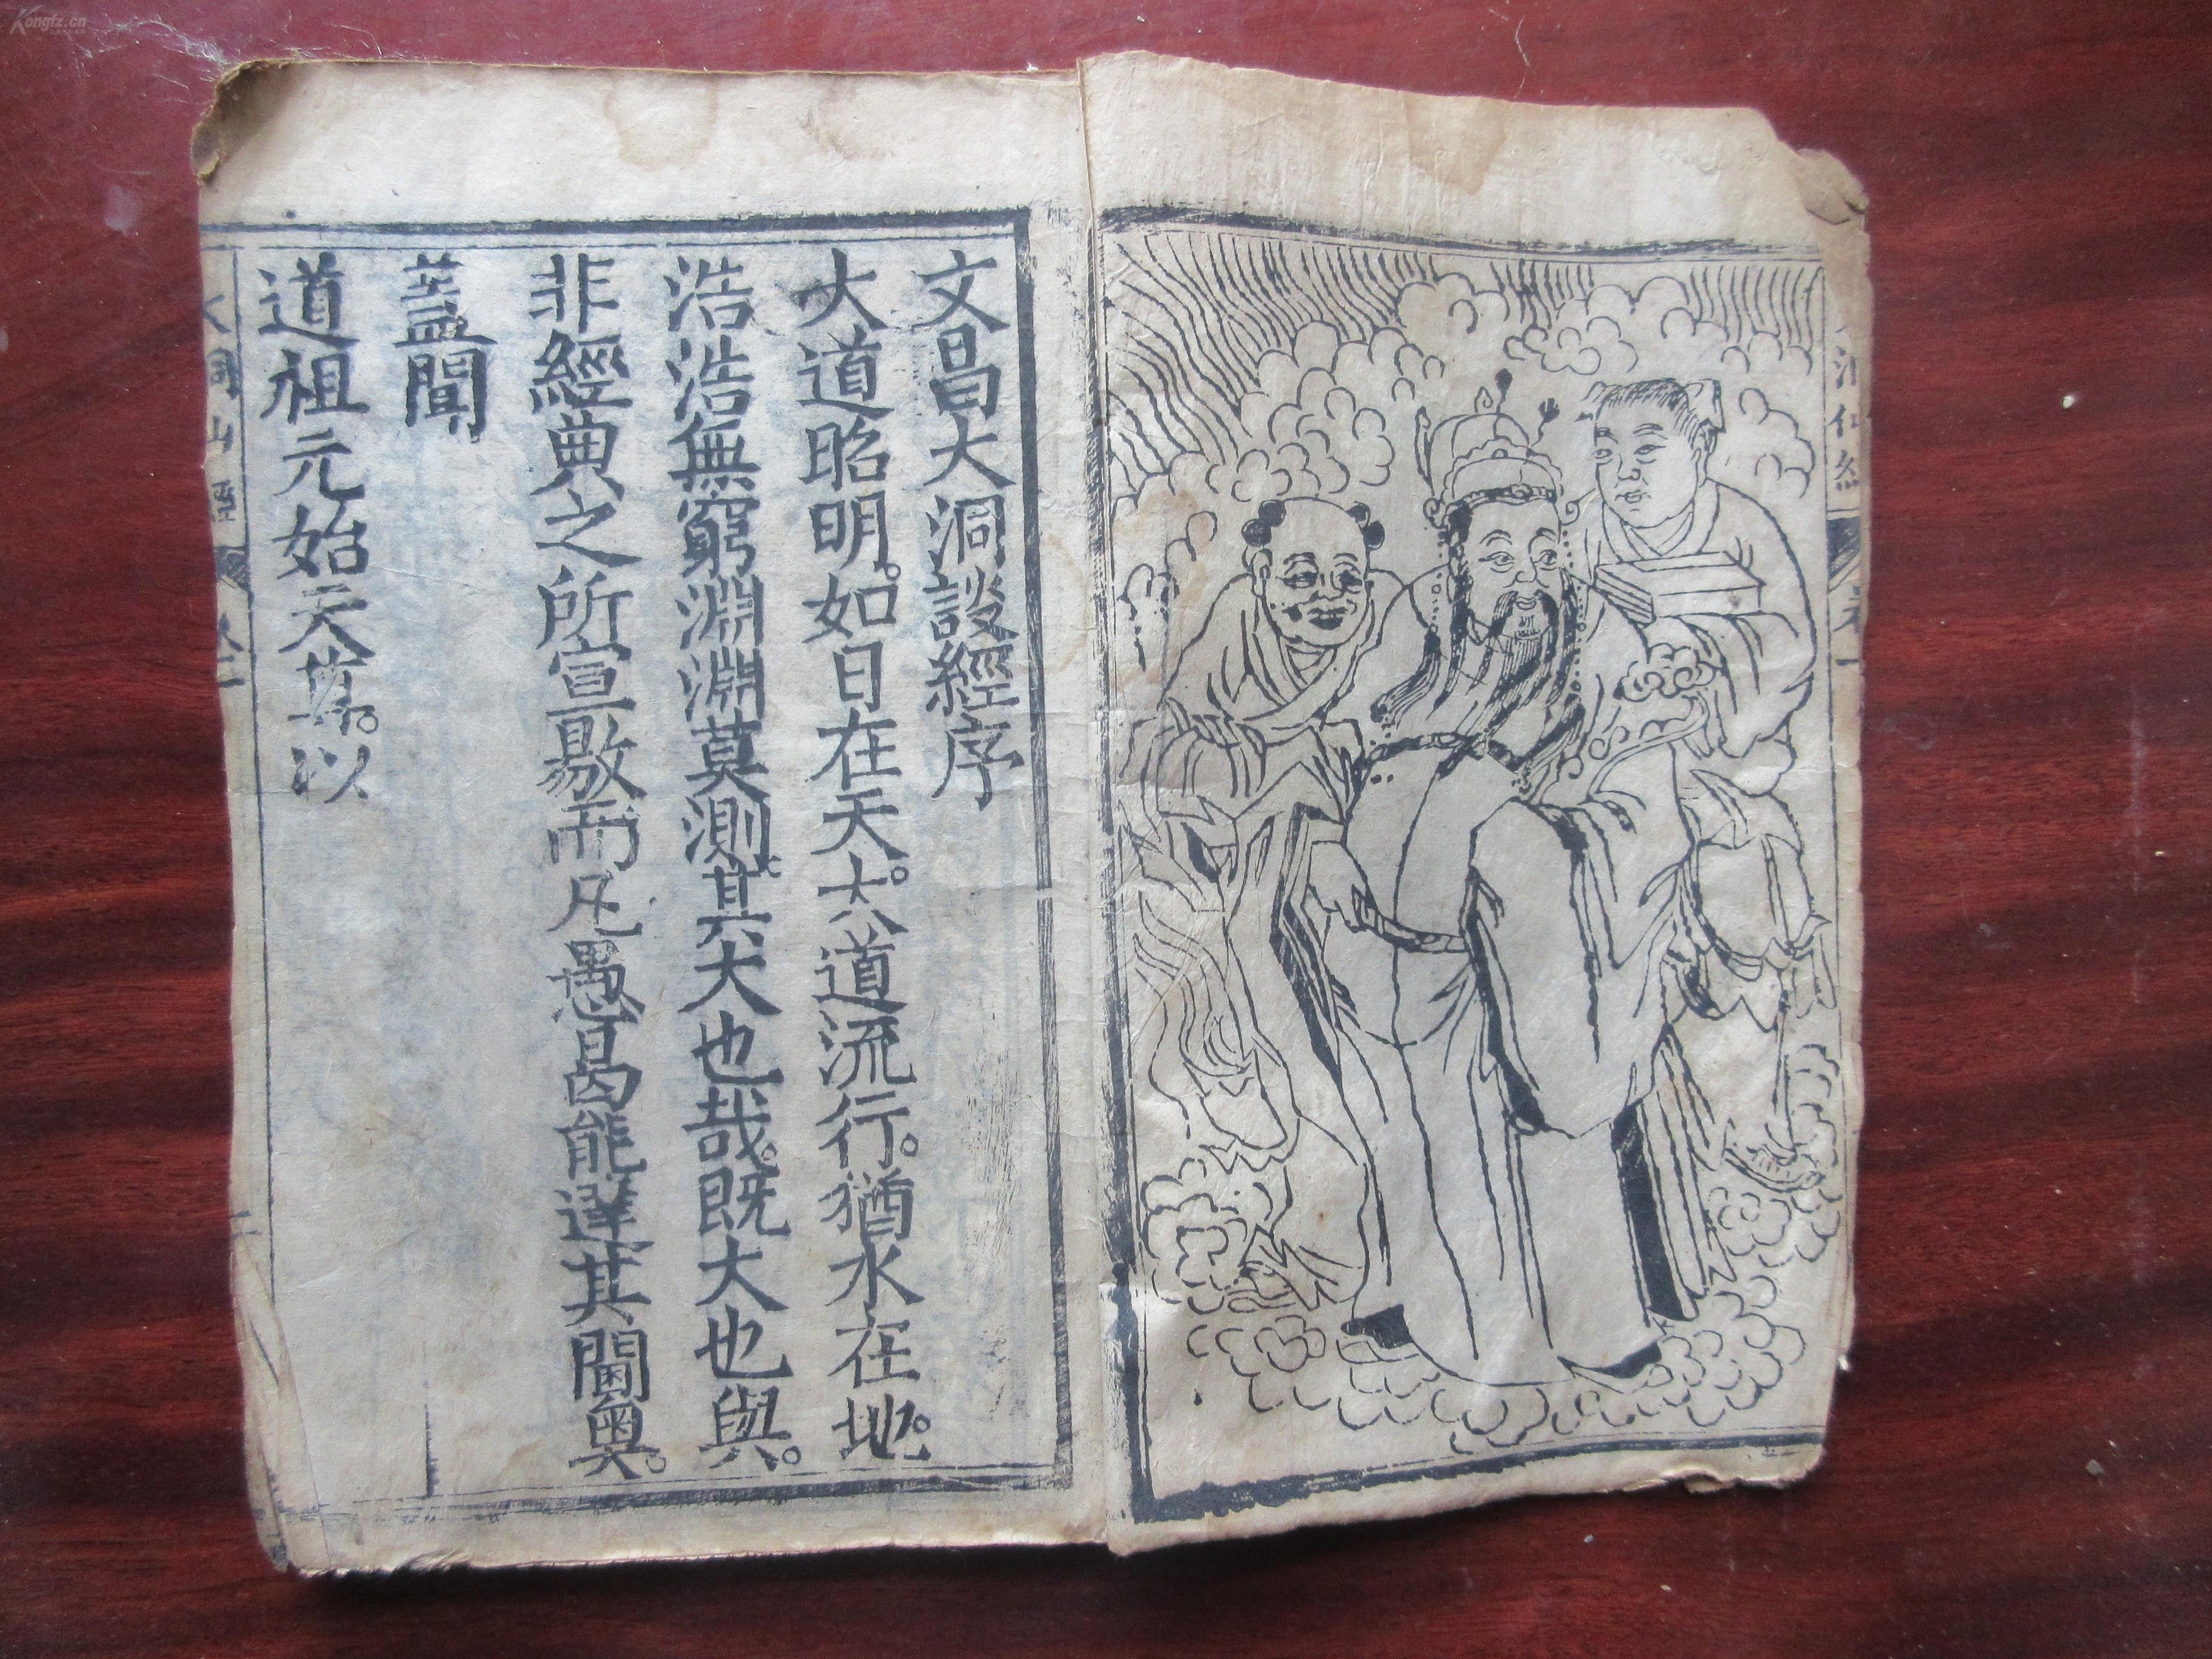 Kongfz.cn
文昌大洞談經序
大道昭明。如日在天。大道流行。猶水在地。
浩浩無窮淵淵莫測。其大也哉。既大也與。
非經典之所宣敭而凡愚曷能達其閫奧。
蓋聞
道祖元始天尊。以